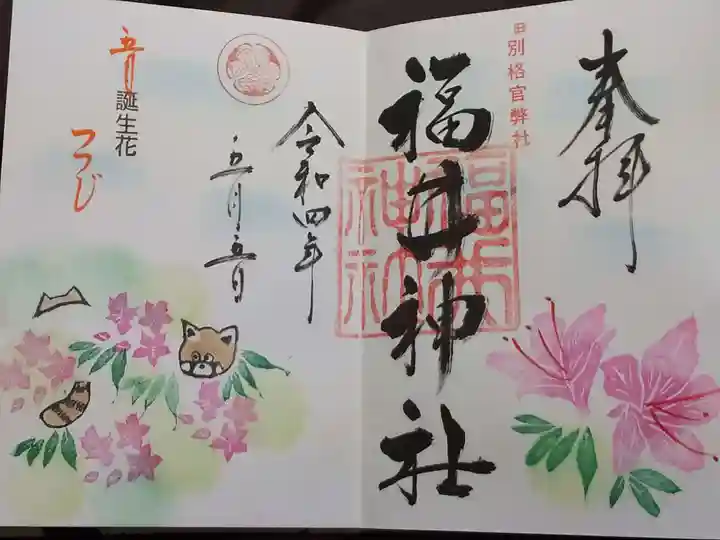 奉拝
旧別格官幣社
福井神社
福井神社
令和四年
五月五日
五月誕生花
つつじ